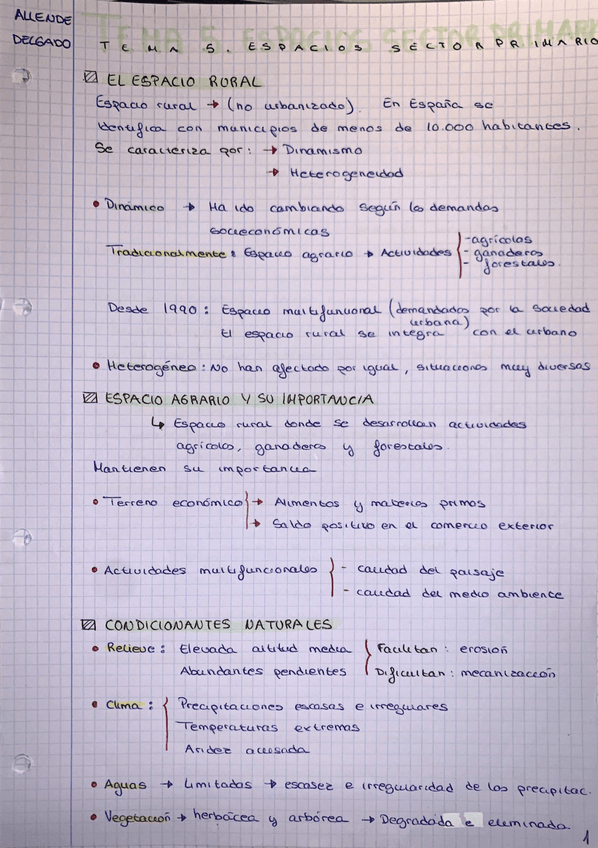 ALLENDE
DELGADO
TEMA 5. ESPACIOS SECTOR PRIMARIO
EL ESPACIO RURAL
Espacio rural → (no urbanizado). En España se
identifica con municipios de menos de 10.000 habitantes.
Se caracteriza por: → Dinamismo
→ Heterogeneidad
• Dinámico → Ha ido cambiando según las demandas
socieconómicas
Tradicionalmente: Espacio agrario → Actividades - agrícolas
- ganaderas
- forestales
Desde 1990: Espacio multifuncional (demandados por la sociedad
urbana)
El espacio rural se integra con el urbano
• Heterogéneo: No han afectado por igual, situaciones muy diversas
ESPACIO AGRARIO Y SU IMPORTANCIA
↳ Espacio rural donde se desarrollan actividades
agrícolas, ganaderas y forestales.
Mantienen su importancia
• Terreno económico → Alimentos y materias primas
→ Saldo positivo en el comercio exterior
• Actividades multifuncionales - calidad del paisaje
- calidad del medio ambiente
CONDICIONANTES NATURALES
• Relieve: Elevada altitud media Facilitan: erosión
Abundantes pendientes Dificultan: mecanización
• Clima: Precipitaciones escasas e irregulares
Temperaturas extremas
Aridez acusada
• Aguas → Limitadas → escasez e irregularidad de las precipitac.
• Vegetación → herbácea y arbórea → Degradada e eleminada.
1